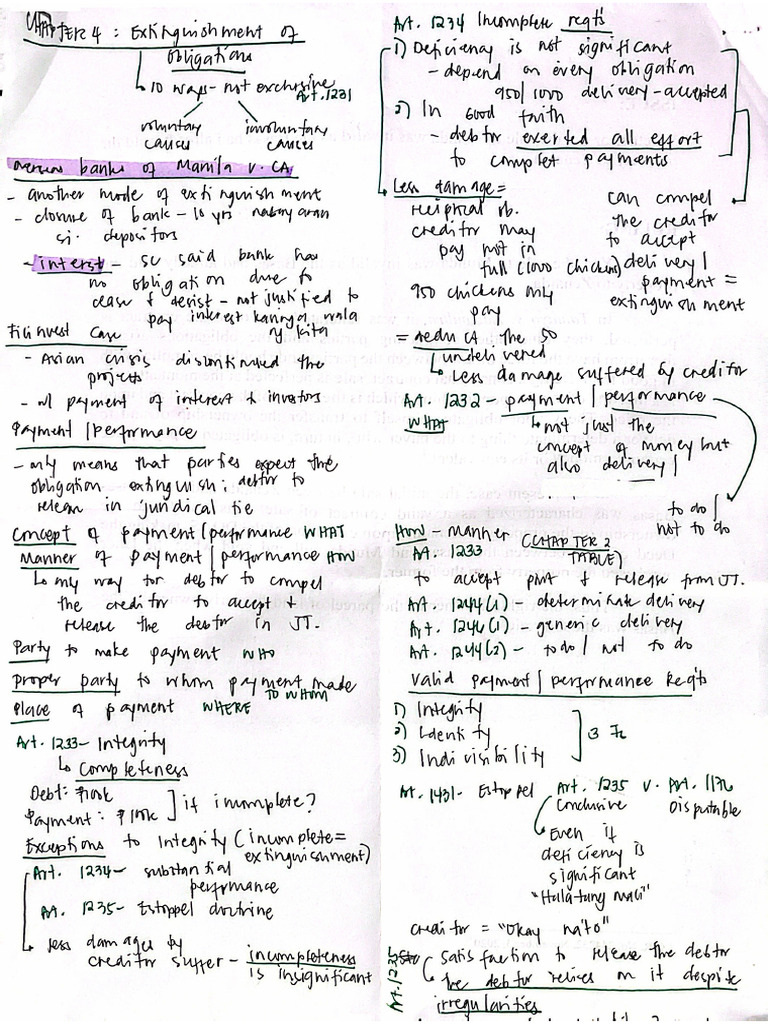 CHAPTER 4 : Extinguishment of
obligations
10 ways - not exclusive
Art. 1231
voluntary causes
involuntary causes
overseas banks of Manila v. CA
- another mode of extinguishment
- closure of bank - 10 yrs nabayaran
si depositors
- interest - SC said bank has
no obligation due to
cease & desist - not justified to
pay interest kanya wala
y kita
Filinvest Case
- Asian crisis discontinued the
projects
- w/ payment of interest investors
Payment / Performance
- only means that parties expect the
obligation extinguish; debtor to
release in juridical tie
Concept of payment / performance WHAT
Manner of payment / performance HOW
↳ only way for debtor to compel
the creditor to accept +
release the debtor in JT.
Party to make payment WHO
proper party to whom payment made
TO WHOM
Place of payment WHERE
Art. 1233 - Integrity
↳ Completeness
Debt: ₱100k
Payment: ₱100k ] if incomplete?
Exceptions to Integrity (incomplete =
extinguishment)
Art. 1234 - substantial
performance
Art. 1235 - Estoppel doctrine
less damages by
creditor suffer - incompleteness
is insignificant
Art. 1234 Incomplete reqts
1) Deficiency is not significant
- depend on every obligation
950/1000 delivery - accepted
2) In good faith
- debtor exerted all effort
to complet payments
Less damage =
reciprcal ob.
creditor may
pay not in
full (1000 chicken)
950 chickens only
pay
can compel
the creditor
to accept
delivery /
payment =
extinguishment
= deduct the 50
undelivered
↳ Less damage suffered by creditor
Art. 1232 - payment / performance
WHAT
↳ not just the
concept of money but
also delivery /
to do /
not to do
HOW - manner (CHAPTER 2
TABLE)
Art. 1233
to accept pmt & release from JT.
Art. 1244 (1) - determinate delivery
Art. 1246 (1) - generic delivery
Art. 1244 (2) - to do / not to do
Valid payment / performance Reqts
1) Integrity
2) Identity
3) Indivisibility
] 3 I's
Art. 1431 - Estoppel
Art. 1235 v. Art. 1176
Conclusive Disputable
Even if
deficiency is
significant
creditor = "Okay na to"
Art. 1235
Satisfaction to release the debtor
the debtor relies on it despite
irregularities